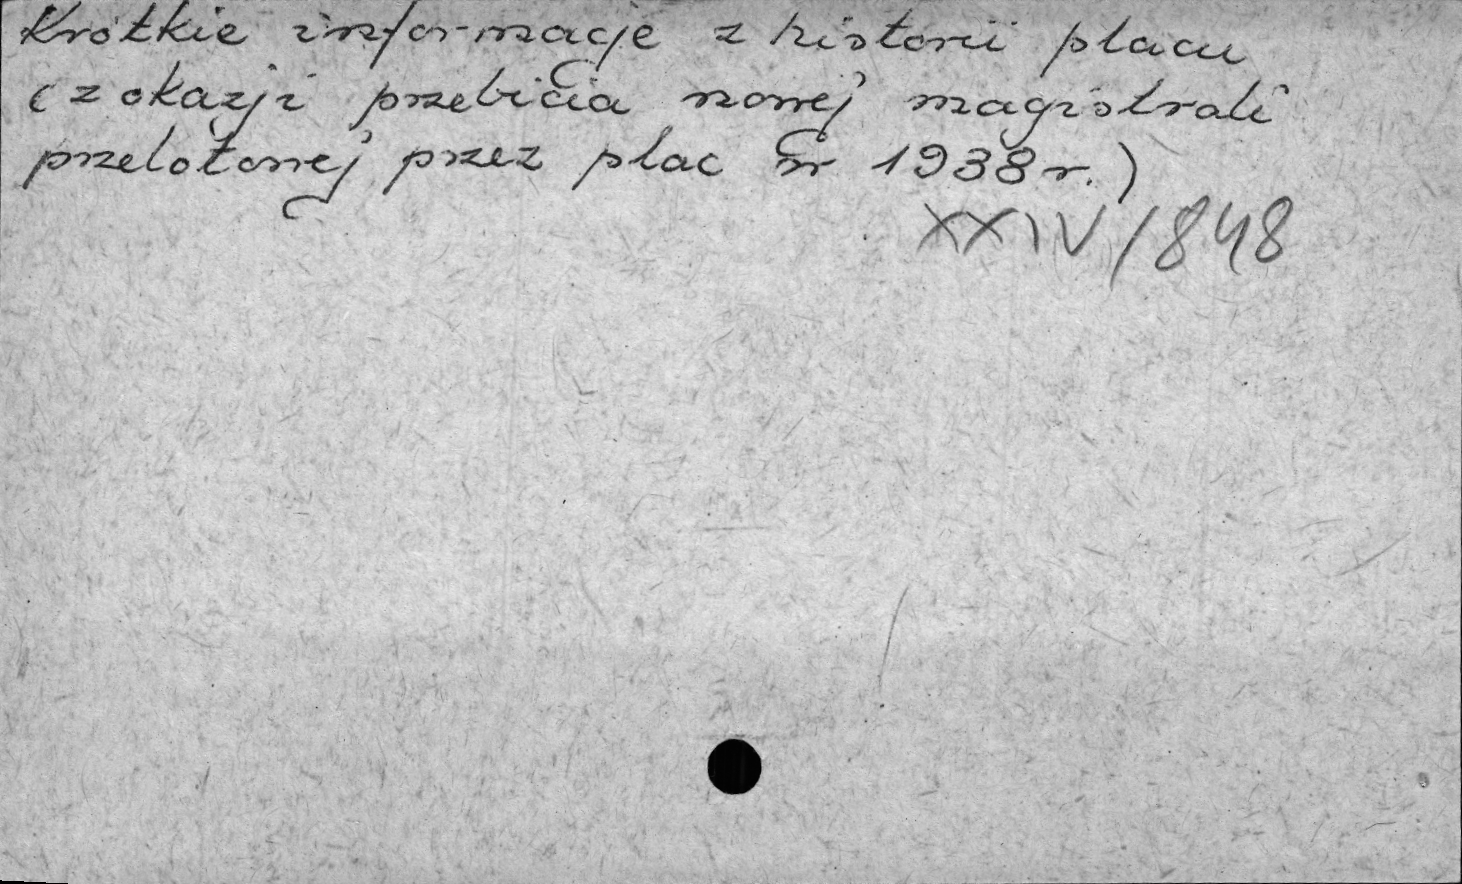 Krótkie informacje z historii placu
(z okazji przebicia nowej magistrali
przelotowej przez plac w 1938 r.)
XXIV/848